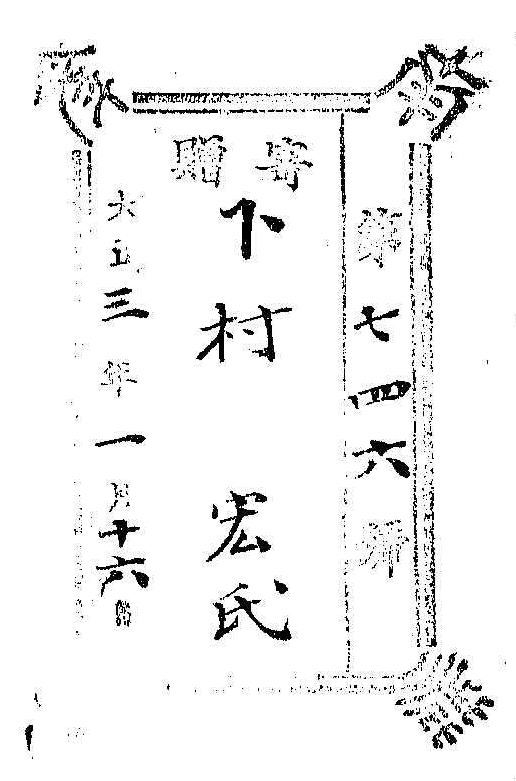 第七四六號
寄贈
下村 宏氏
大正三年一月十六日